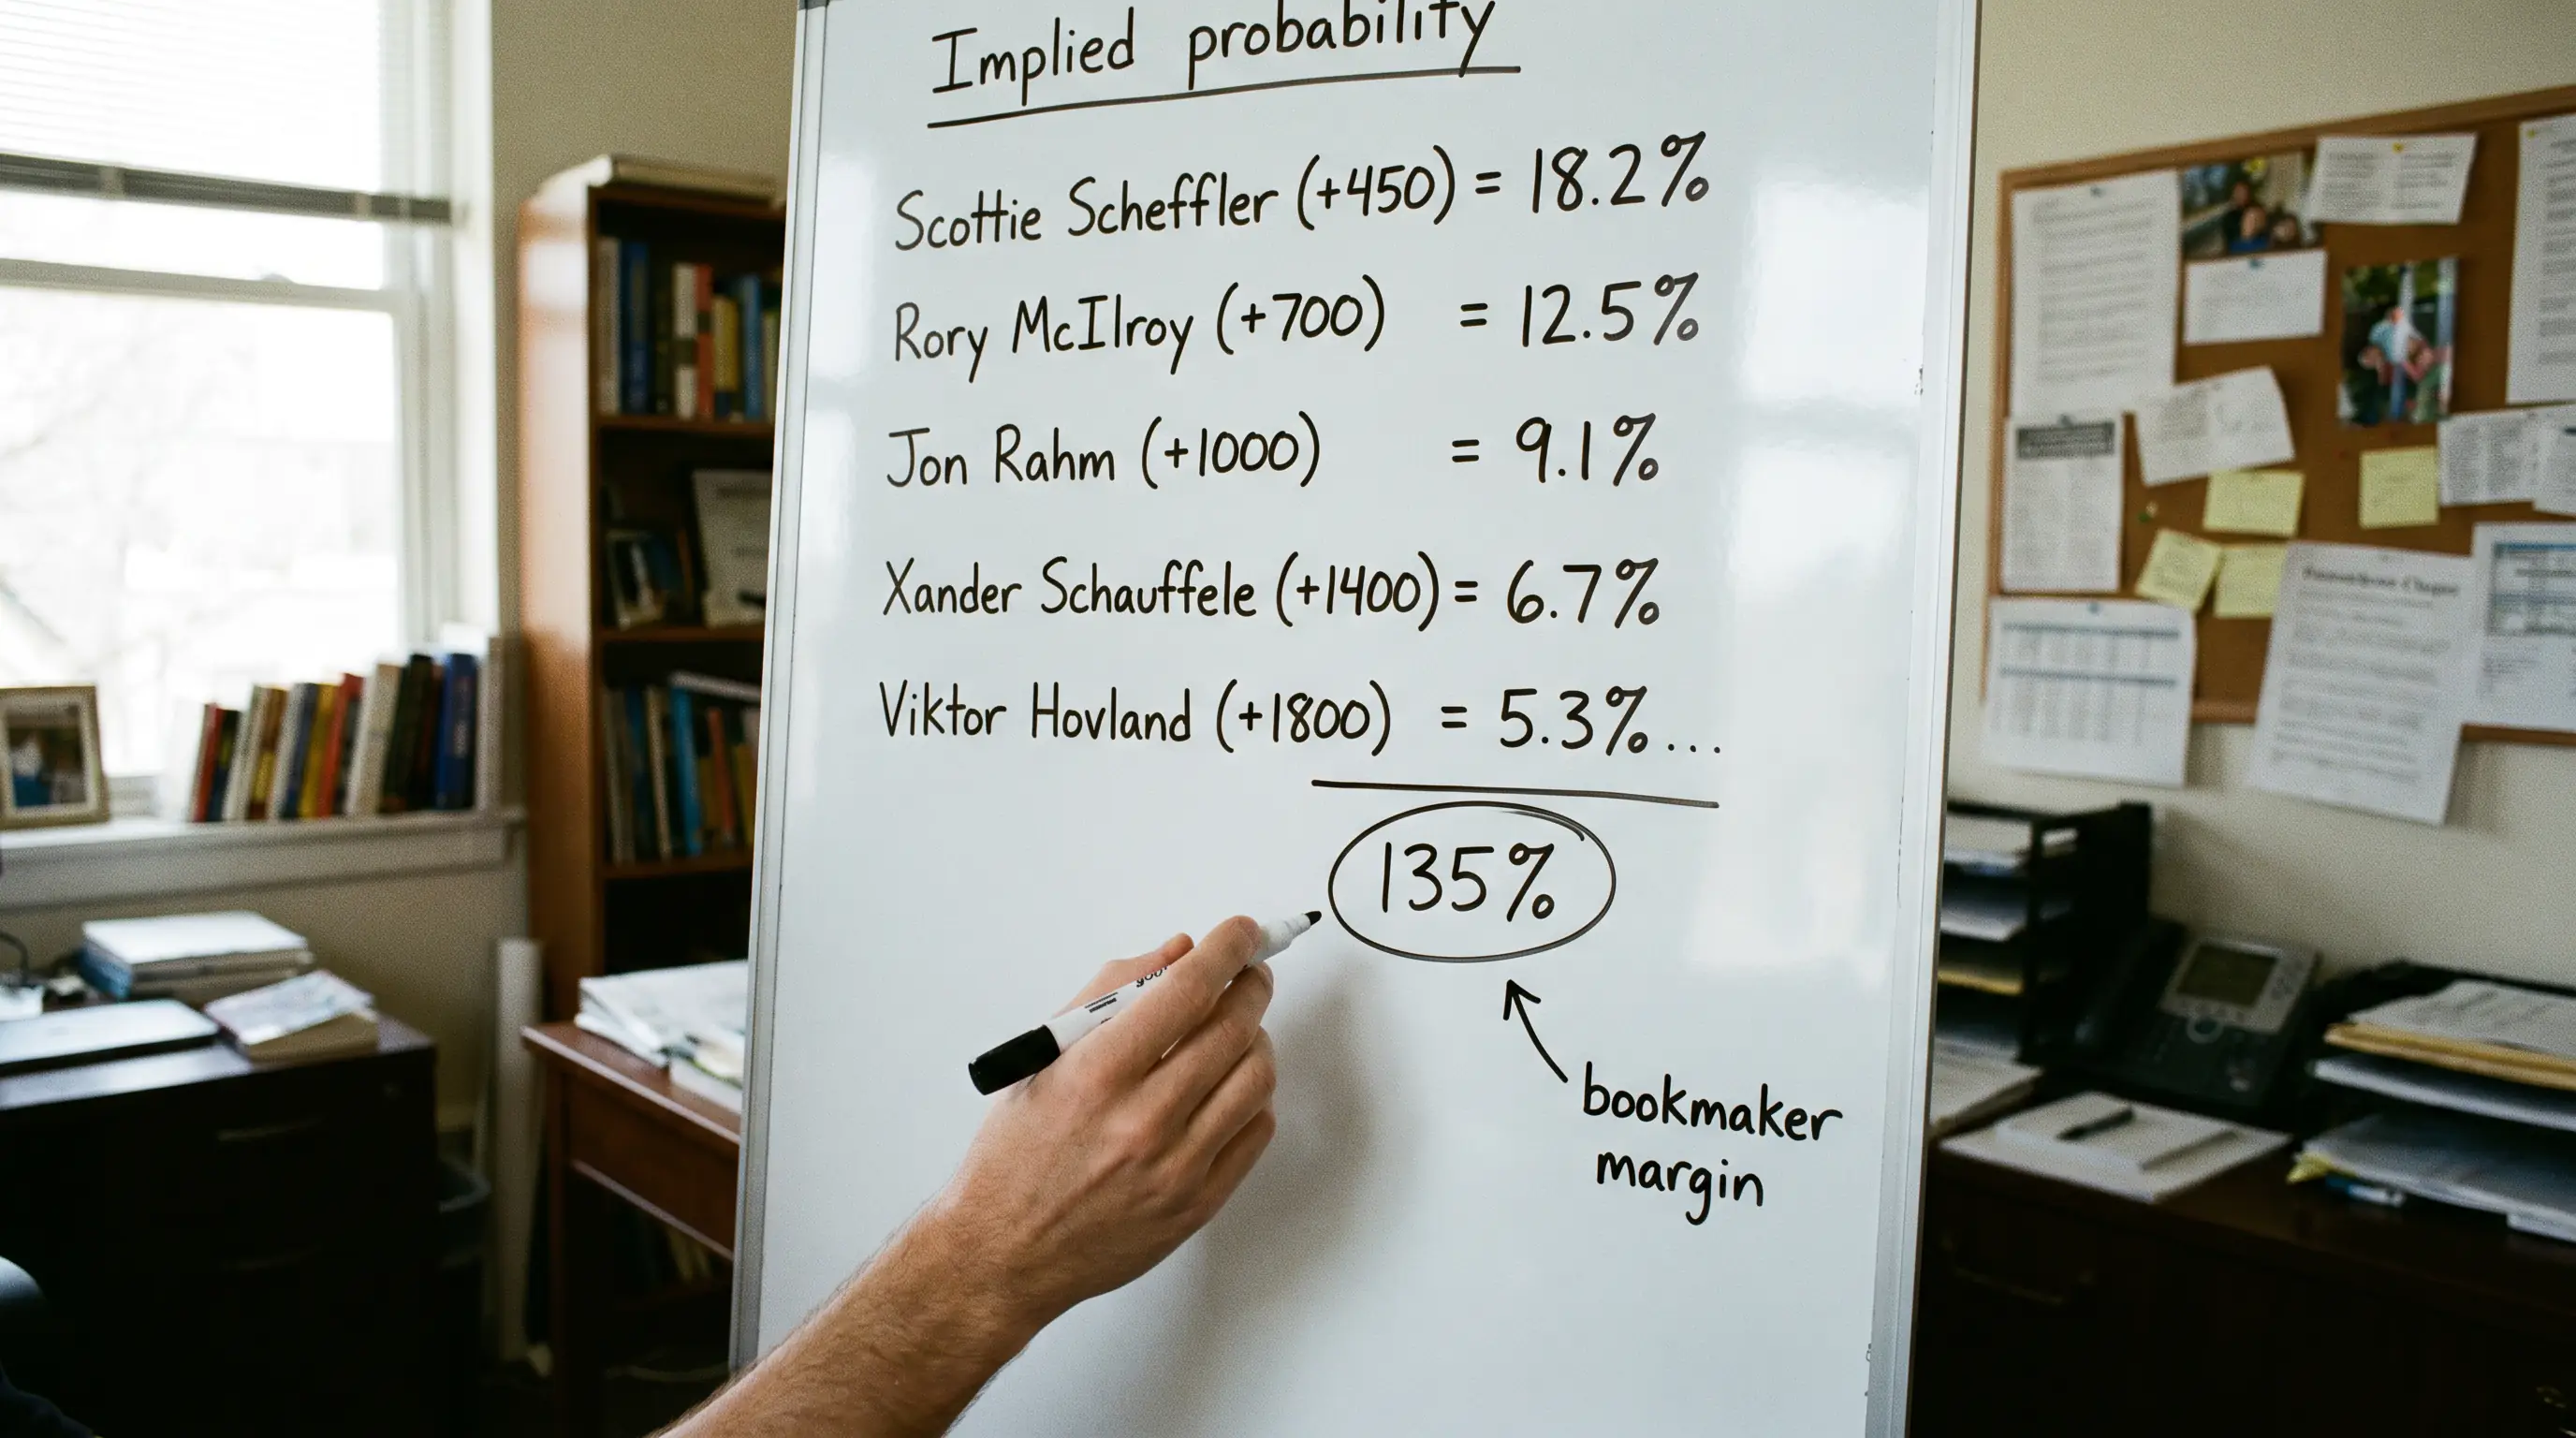 Implied probability
Scottie Scheffler (+450) = 18.2%
Rory McIlroy (+700) = 12.5%
Jon Rahm (+1000) = 9.1%
Xander Schauffele (+1400) = 6.7%
Viktor Hovland (+1800) = 5.3%...
135%
bookmaker
margin